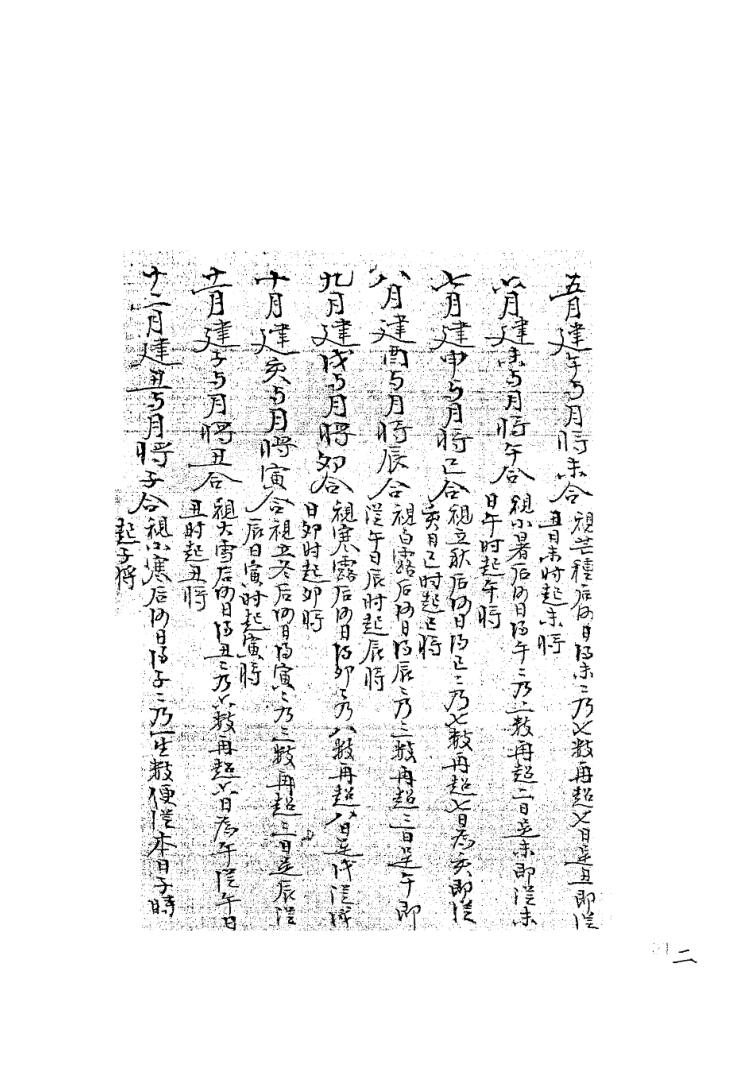 五月建午与月將未合
視芒種后何日得未二乃七数再起七日是丑即従
丑日未时起未將
六月建未与月將午合
視小暑后何日得午二乃二数再起二日是未即従未
日午时起午將
七月建申与月將巳合
視立秋后何日得巳二乃七数再起七日為亥即従
亥日巳时起巳將
八月建酉与月將辰合
視白露后何日得辰二乃三数再起三日是午即
従午日辰时起辰將
九月建戌与月將卯合
視寒露后何日得卯二乃八数再起八日是戌従戌
日卯时起卯將
十月建亥与月將寅合
視立冬后何日得寅二乃三数再起三日是辰従
辰日寅时起寅將
十一月建子与月將丑合
視大雪后何日得丑二乃六数再起六日為午従午日
丑时起丑將
十二月建丑与月將子合
視小寒后何日得子二乃一生数便従本日子時
起子將
二